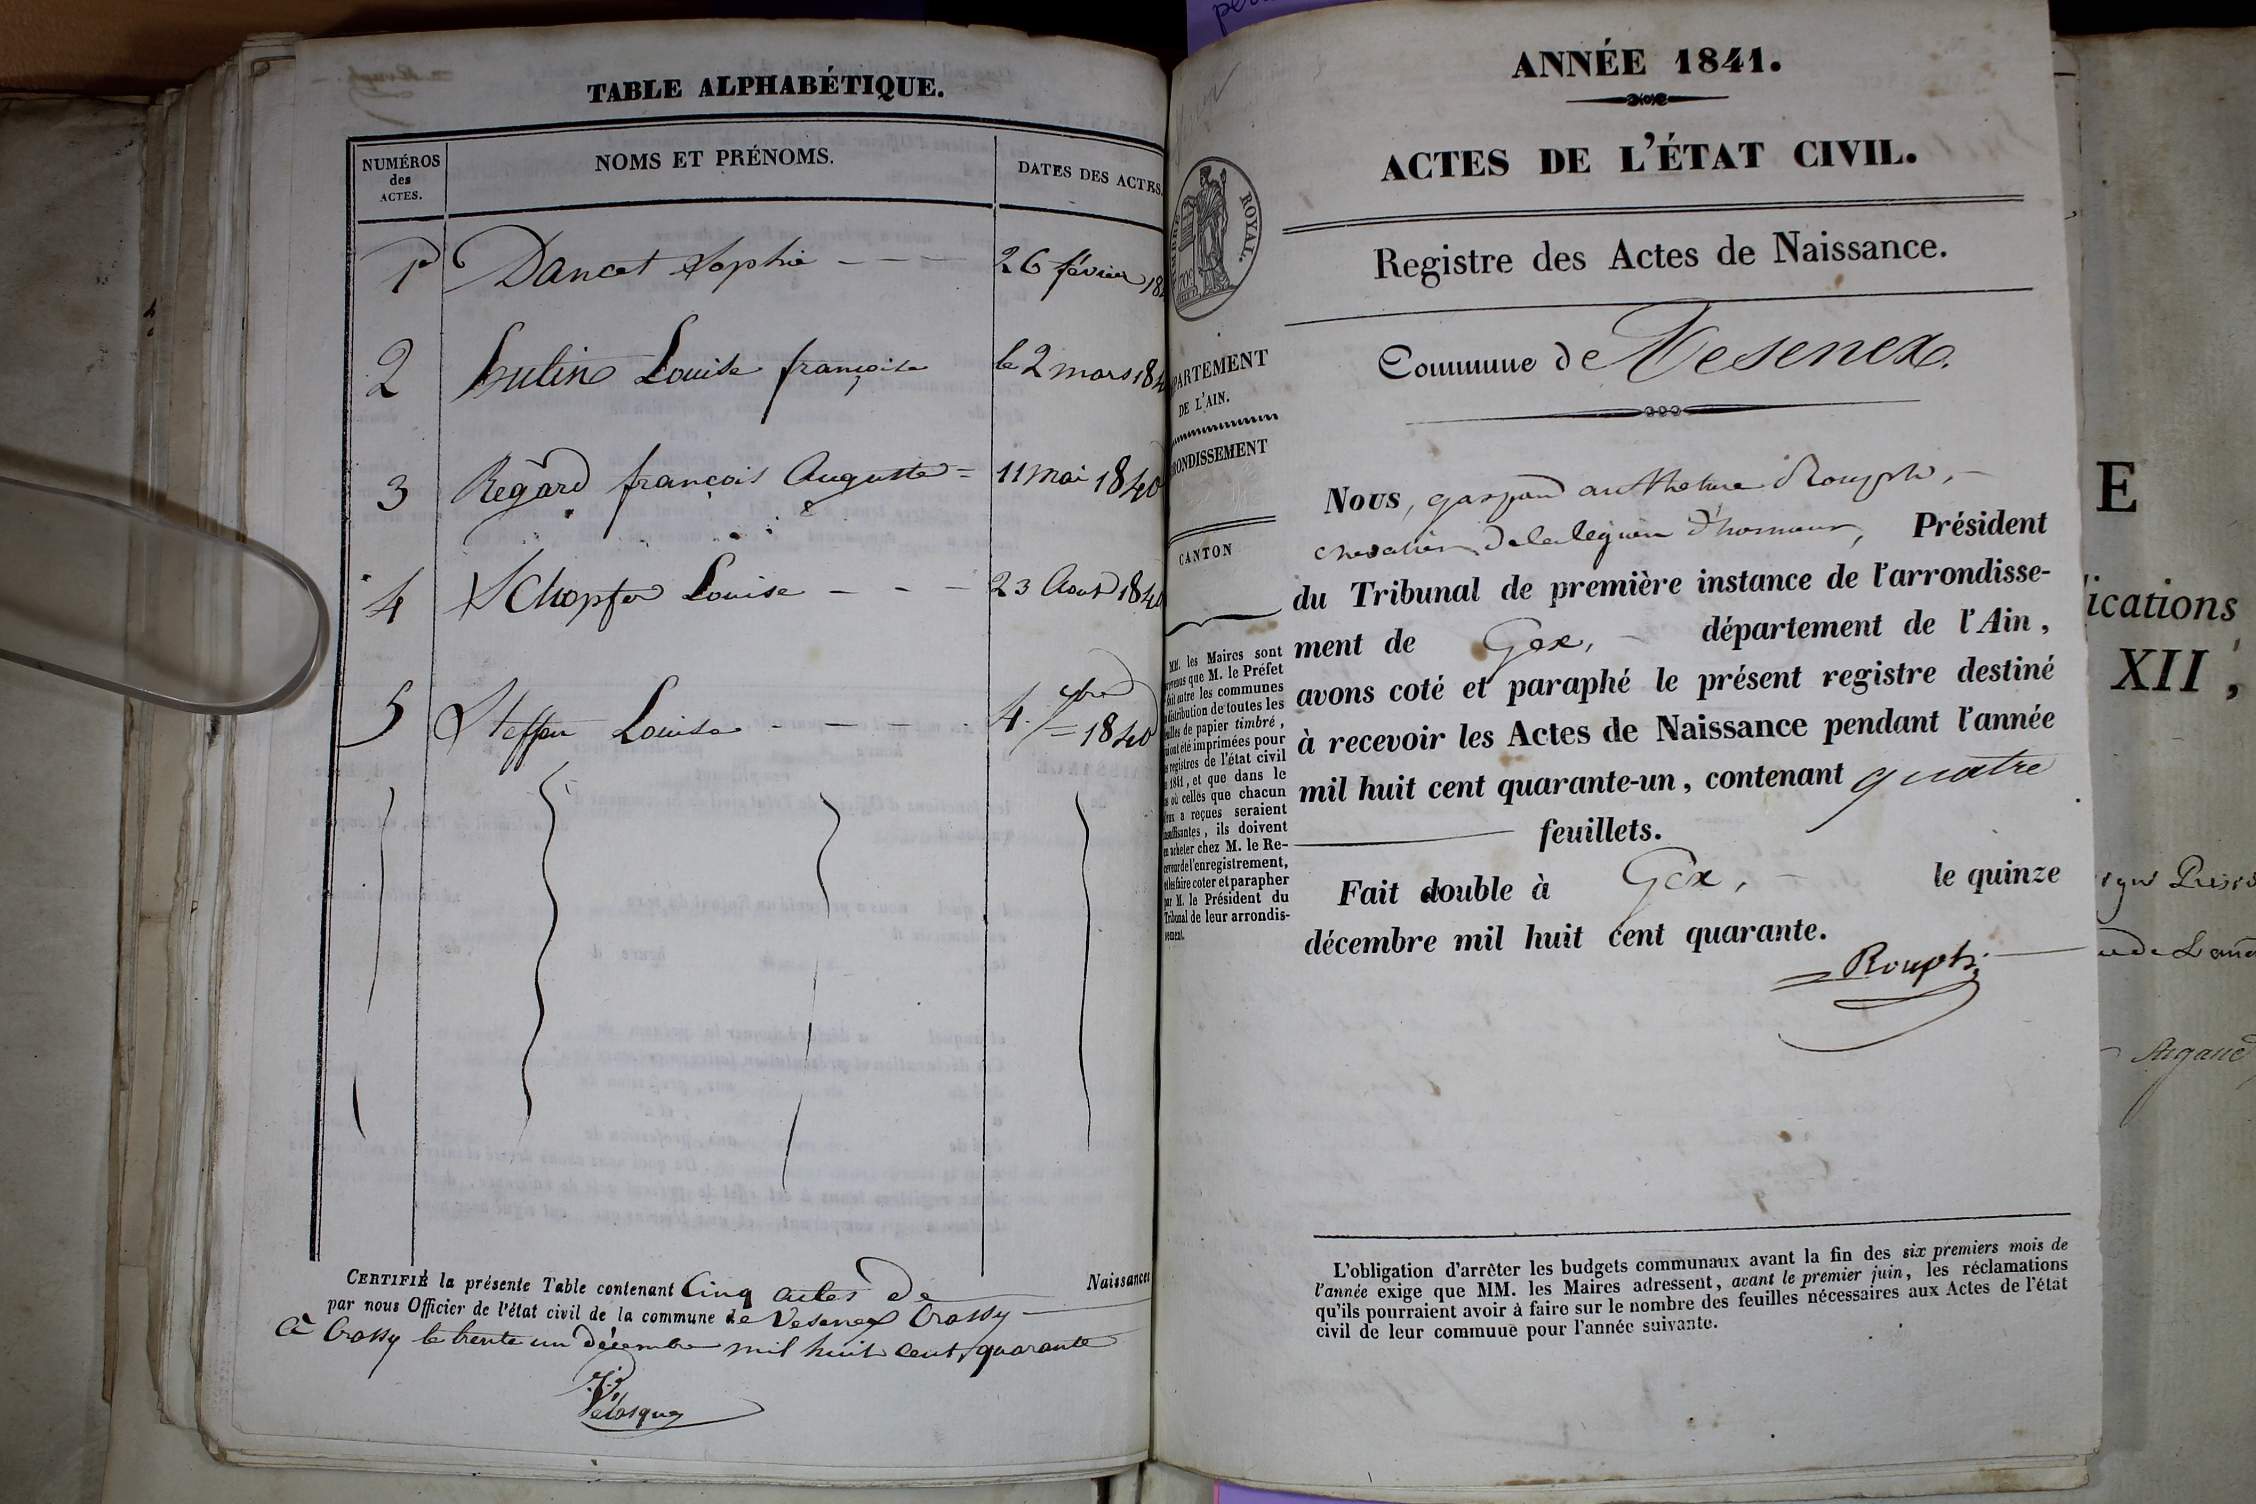 TABLE ALPHABÉTIQUE.
NUMÉROS
des
ACTES.
NOMS ET PRÉNOMS.
DATES DES ACTES.
1er Dancet Sophie - - - 26 février 184
2 hutin Louise françoise le 2 mars 184
3 Regard françois Auguste = 11 mai 1840
4 Schopfer Louise - - - 23 Aout 1840
5 Steffen Louise - - - 4 9bre = 1840
CERTIFIÉ la présente Table contenant Cinq actes de Naissances
par nous Officier de l'état civil de la commune de Vesenex Crassy
à Crassy le trente un décembre mil huit cent quarante
ANNÉE 1841.
ACTES DE L'ÉTAT CIVIL.
Registre des Actes de Naissance.
Commune de Vesenex.
ROYAL.
PARTEMENT
DE L'AIN.
RONDISSEMENT
CANTON
MM. les Maires sont
que M. le Préfet
fait entre les communes
distribution de toutes les
feuilles de papier timbré,
ont été imprimées pour
registres de l'état civil
1841, et que dans le
où celles que chacun
a reçues seraient
insuffisantes, ils doivent
en acheter chez M. le Re-
ceveur de l'enregistrement,
et les faire coter et parapher
par M. le Président du
Tribunal de leur arrondis-
sement.
Nous, gaspard anthelme Rouph,
chevalier de la légion d'honneur, Président
du Tribunal de première instance de l'arrondisse-
ment de Gex, département de l'Ain,
avons coté et paraphé le présent registre destiné
à recevoir les Actes de Naissance pendant l'année
mil huit cent quarante-un, contenant quatre
feuillets.
Fait double à Gex, le quinze
décembre mil huit cent quarante.
Rouph
L'obligation d'arrêter les budgets communaux avant la fin des six premiers mois de
l'année exige que MM. les Maires adressent, avant le premier juin, les réclamations
qu'ils pourraient avoir à faire sur le nombre des feuilles nécessaires aux Actes de l'état
civil de leur commune pour l'année suivante.
E
ications
XII,